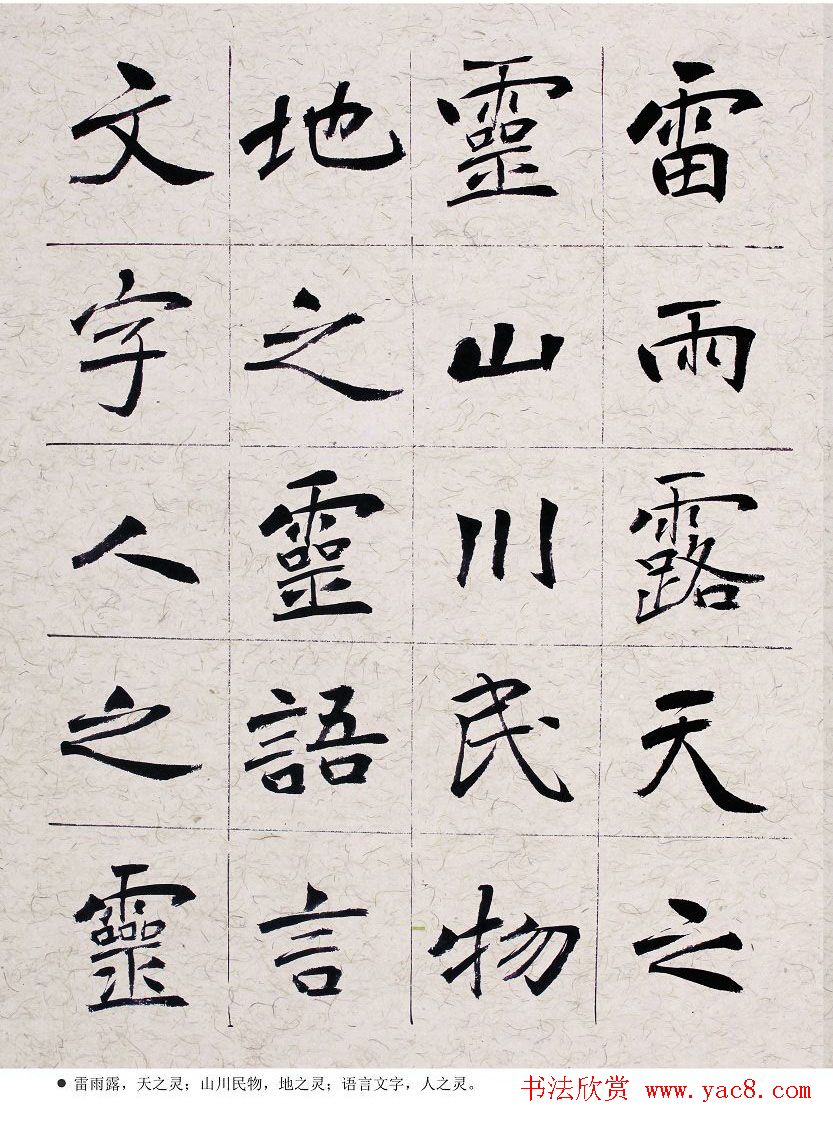 雷雨露天之
靈山川民物
地之靈語言
文字人之靈
● 雷雨露，天之灵；山川民物，地之灵；语言文字，人之灵。
书法欣赏 www.yac8.com